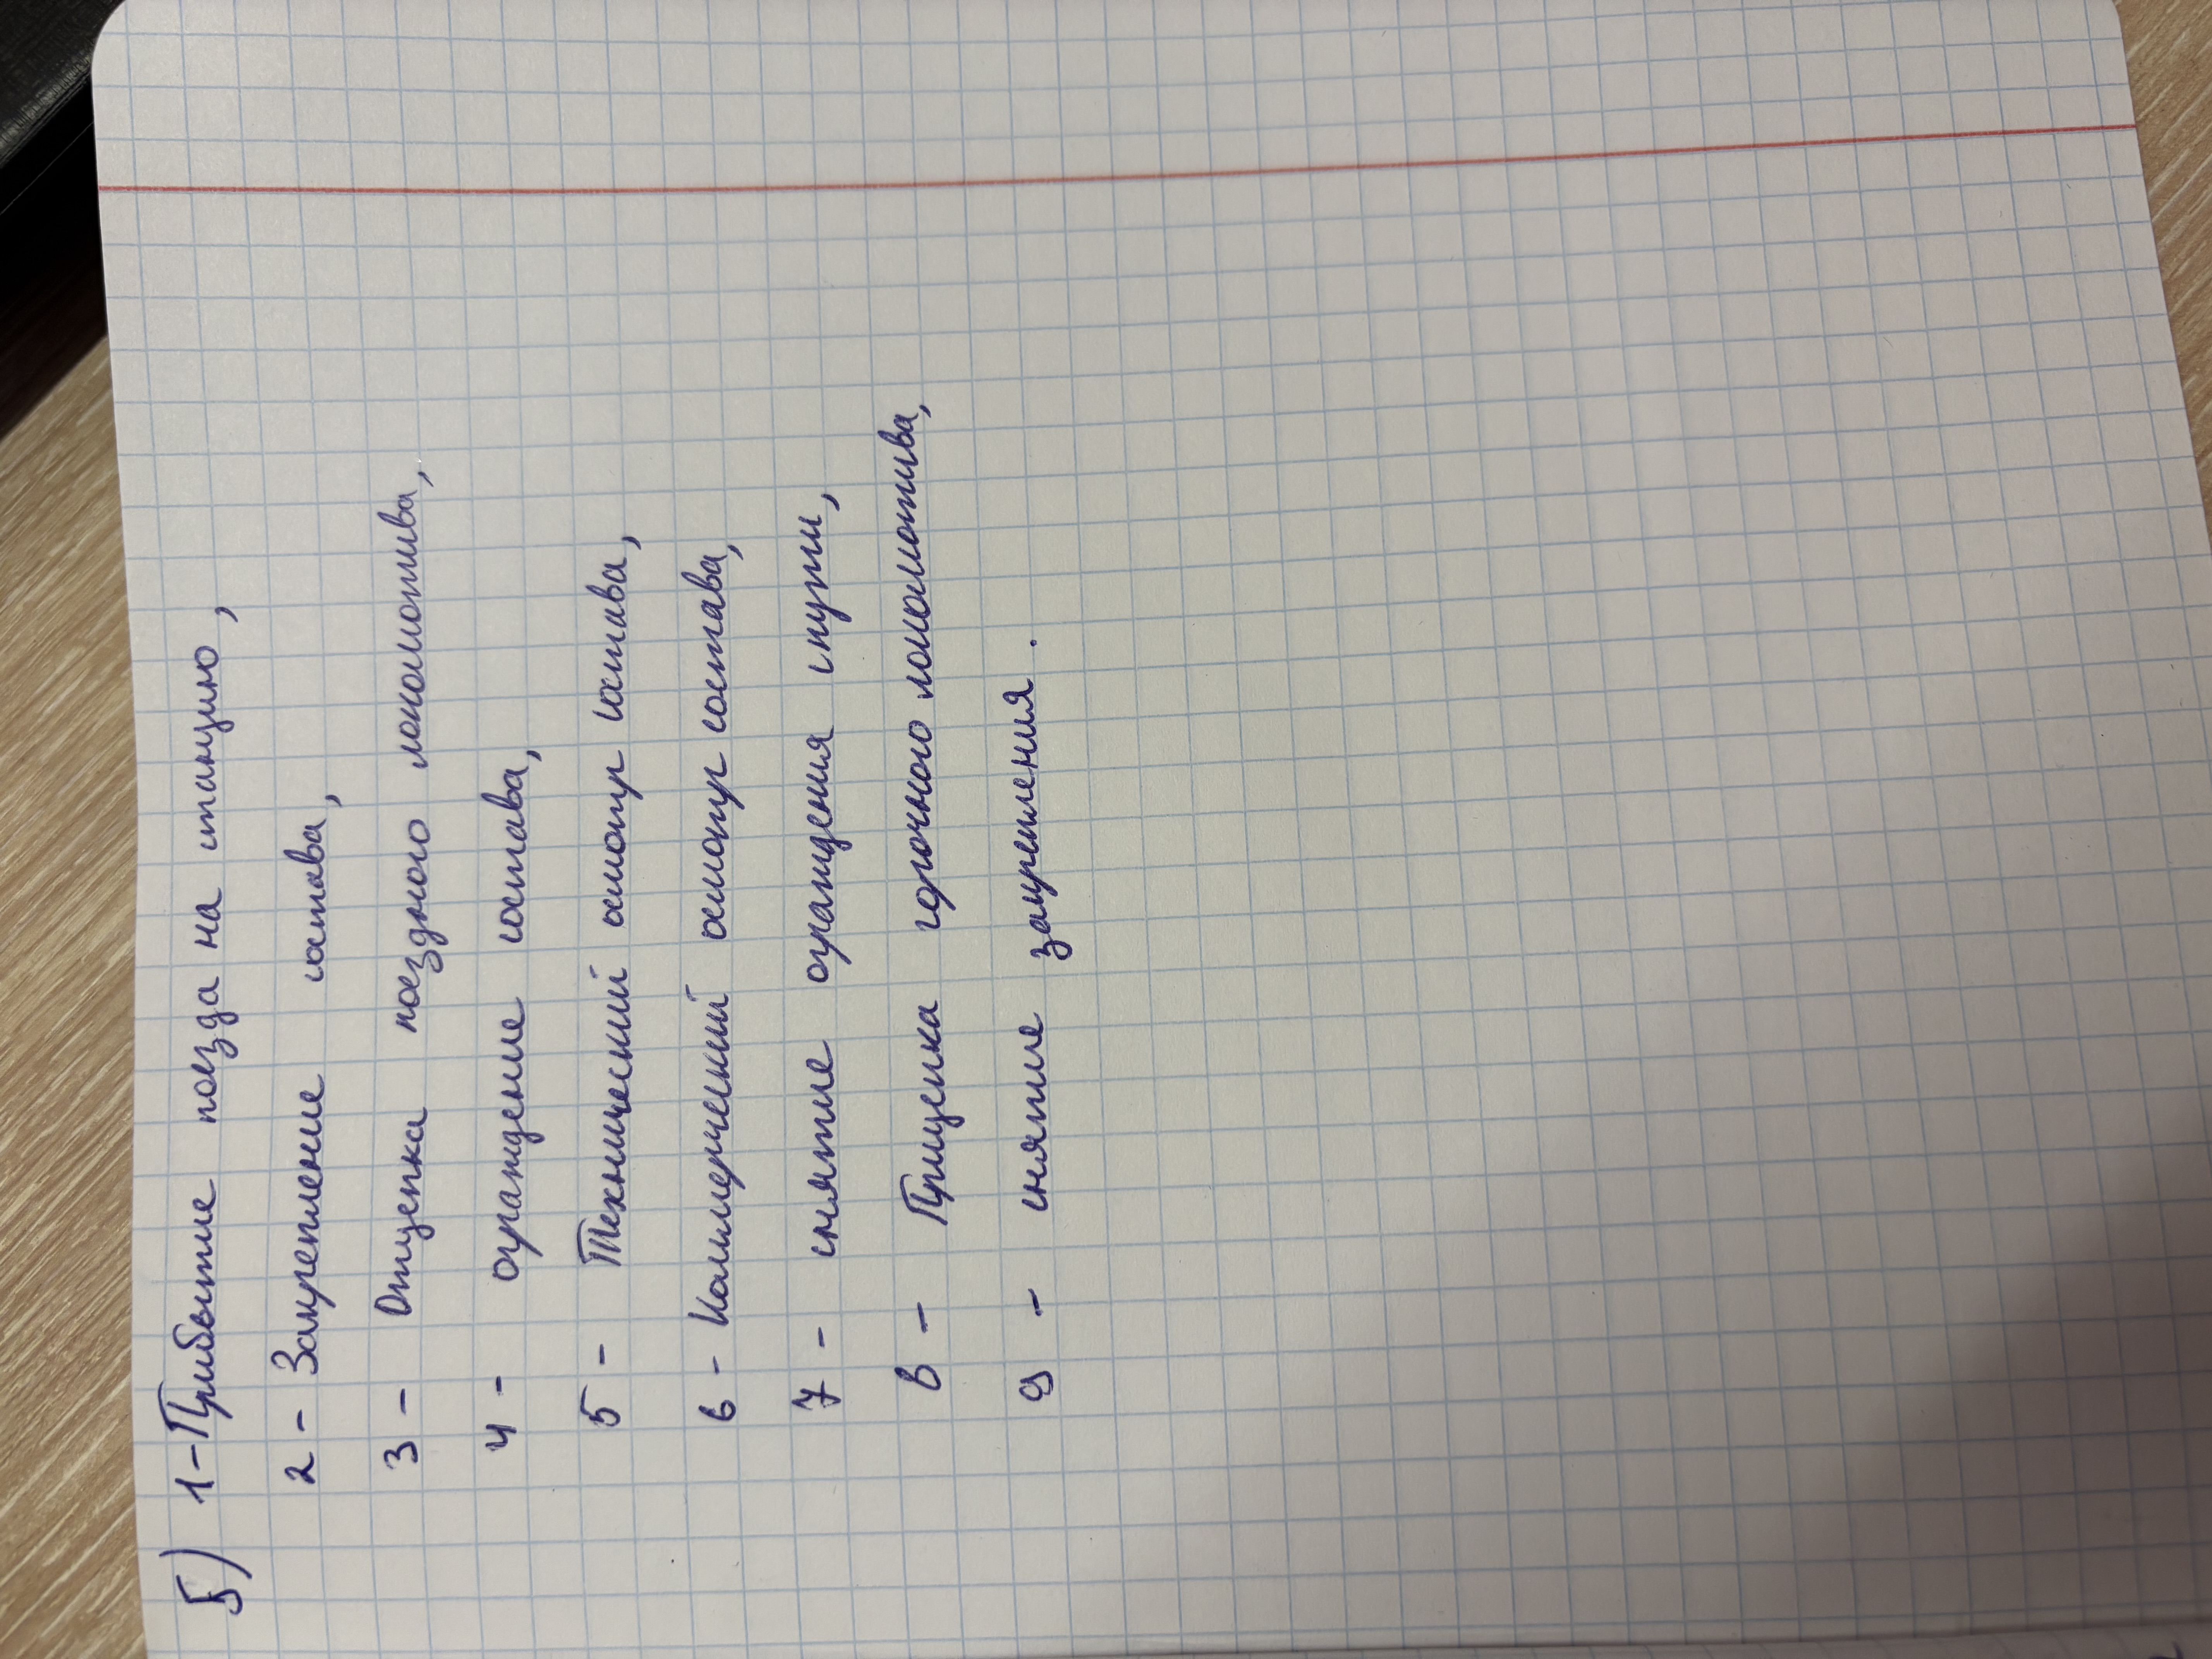 5) 1 - Прибытие поезда на станцию,
2 - Закрепление состава,
3 - Отцепка поездного локомотива,
4 - ограждение состава,
5 - Технический осмотр состава,
6 - Коммерческий осмотр состава,
7 - снятие ограждения пути,
8 - Прицепка горочного локомотива,
9 - снятие закрепления.